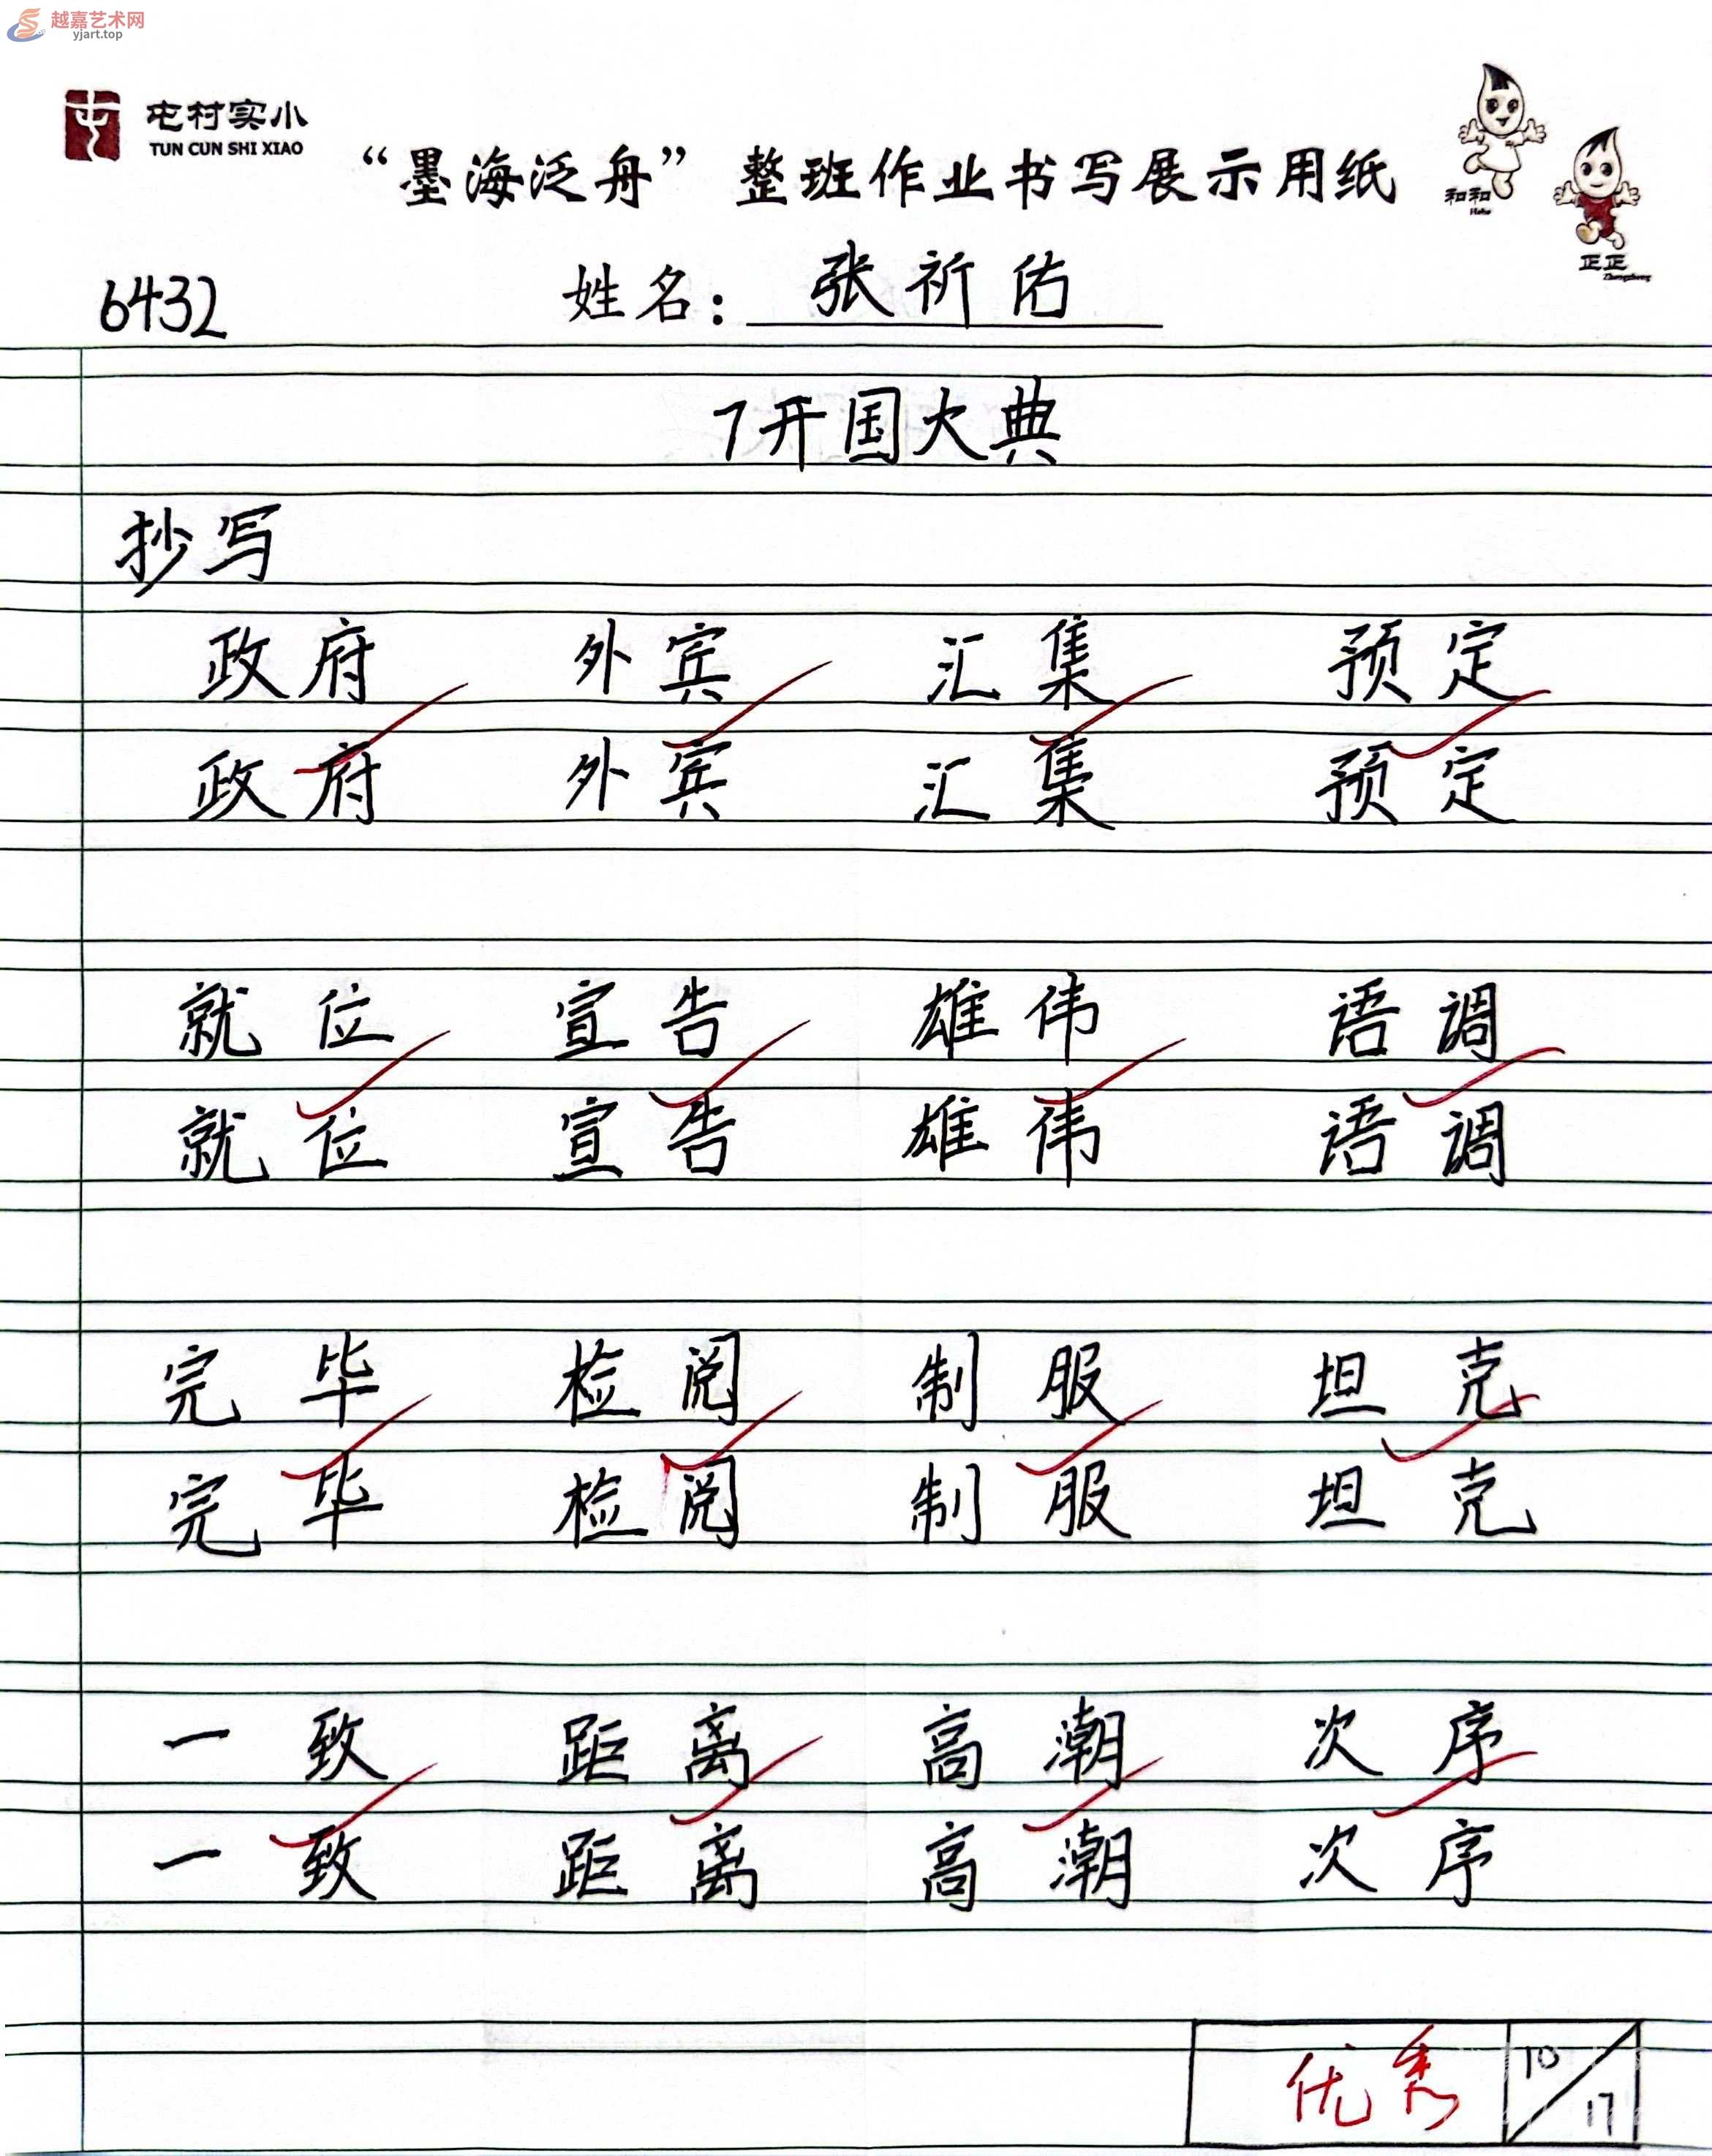 越嘉艺术网
yjart.top
屯村实小
TUN CUN SHI XIAO
“墨海泛舟”整班作业书写展示用纸
和和
Hehe
正正
Zhengzheng
6432 姓名：张祈佑
7开国大典
抄写
政府 外宾 汇集 预定
政府 外宾 汇集 预定
就位 宣告 雄伟 语调
就位 宣告 雄伟 语调
完毕 检阅 制服 坦克
完毕 检阅 制服 坦克
一致 距离 高潮 次序
一致 距离 高潮 次序
优秀 10/17